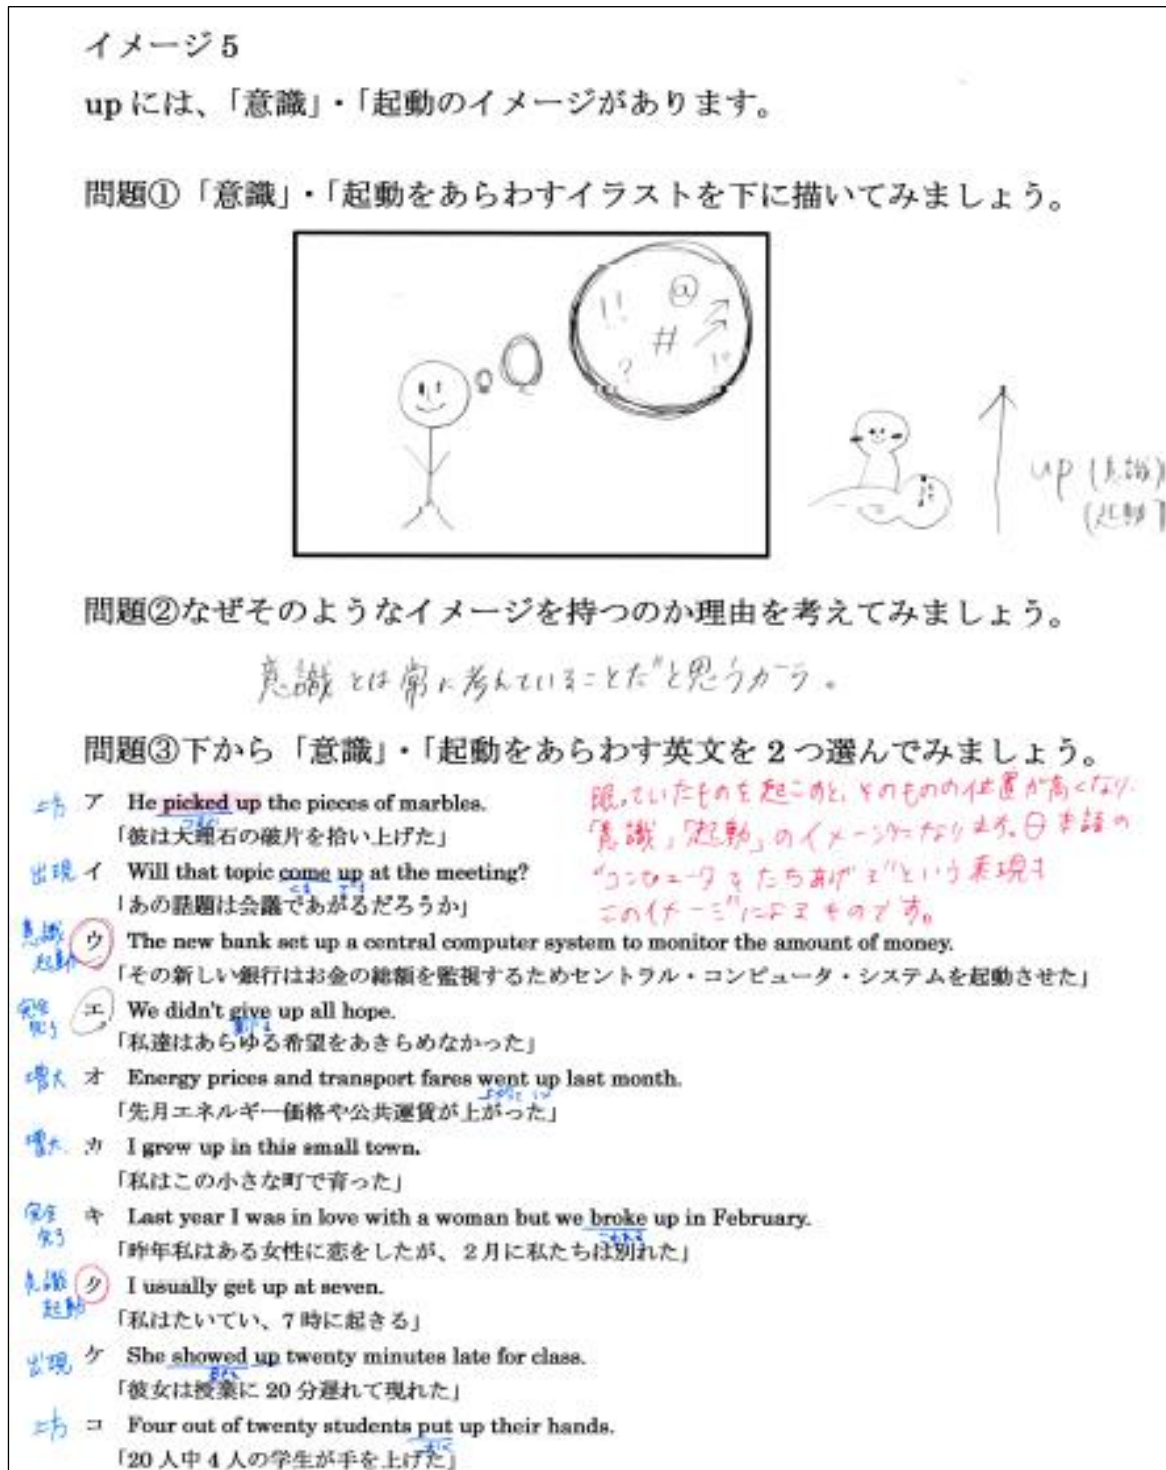 イメージ5
upには、「意識」・「起動のイメージがあります。
問題①「意識」・「起動をあらわすイラストを下に描いてみましょう。
!! @
#
?
up (意識)
(起動)
問題②なぜそのようなイメージを持つのか理由を考えてみましょう。
意識とは常に考えていることだと思うから。
問題③下から「意識」・「起動をあらわす英文を2つ選んでみましょう。
眠っていたものを起こすと、そのものの位置が高くなり、
「意識」「起動」のイメージになります。日本語の
"コンピュータをたちあげる"という表現も
このイメージによるものです。
ア He picked up the pieces of marbles.
「彼は大理石の破片を拾い上げた」
出現 イ Will that topic come up at the meeting?
「あの話題は会議であがるだろうか」
意識 起動 ウ The new bank set up a central computer system to monitor the amount of money.
「その新しい銀行はお金の総額を監視するためセントラル・コンピュータ・システムを起動させた」
完全 完了 エ We didn't give up all hope.
「私達はあらゆる希望をあきらめなかった」
増大 オ Energy prices and transport fares went up last month.
「先月エネルギー価格や公共運賃が上がった」
増大 カ I grew up in this small town.
「私はこの小さな町で育った」
完全 完了 キ Last year I was in love with a woman but we broke up in February.
「昨年私はある女性に恋をしたが、2月に私たちは別れた」
意識 起動 ク I usually get up at seven.
「私はたいてい、7時に起きる」
出現 ケ She showed up twenty minutes late for class.
「彼女は授業に20分遅れて現れた」
コ Four out of twenty students put up their hands.
「20人中4人の学生が手を上げた」